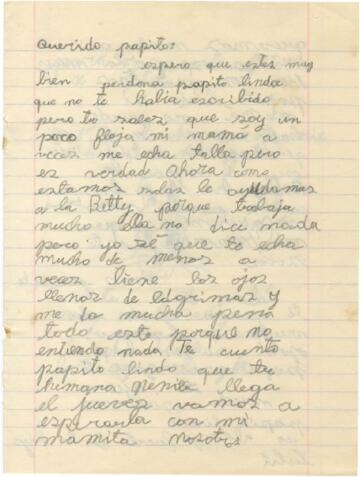 Querido papito:
espero que estes muy
bien perdona papito lindo
que no te habia escribido
pero tu sabes que soy un
poco floja mi mama a
veces me echa talla pero
es verdad Ahora como
estamos solas le ayudamos
a la Betty porque trabaja
mucho ella no dice nada
pero yo sé que te echa
mucho de menos a
veces tiene los ojos
llenos de lagrimas y
me da mucha pena
todo esto porque no
entiendo nada Te cuento
papito lindo que tu
hermana llega
el jueves vamos a
esperarla con mi
mamita nosotros